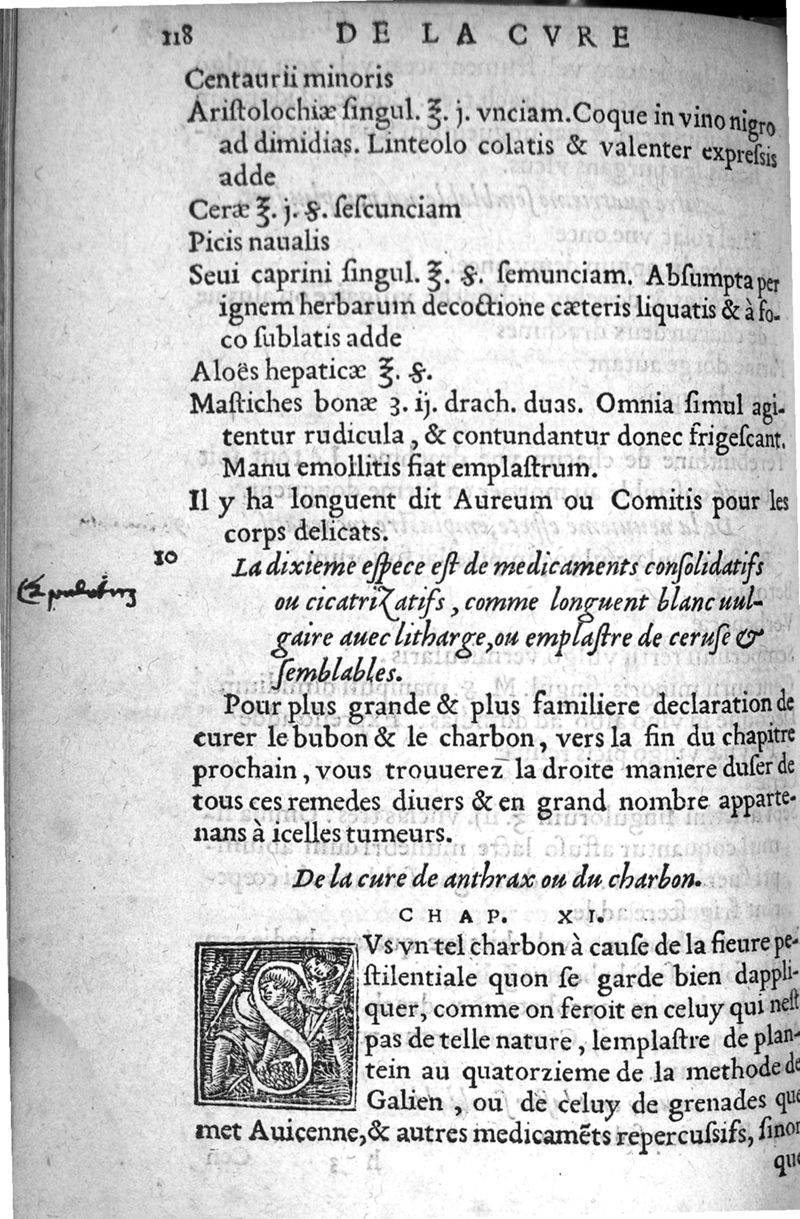 118 DE LA CVRE
Centaurii minoris
Ariſtolochiæ ſingul. ℥. j. vnciam. Coque in vino nigro
ad dimidias. Linteolo colatis & valenter expreſsis
adde
Ceræ ℥. j. ẞ. ſeſcunciam
Picis naualis
Seui caprini ſingul. ℥. ẞ. ſemunciam. Abſumpta per
ignem herbarum decoctione cæteris liquatis & à fo-
co ſublatis adde
Aloës hepaticæ ℥. ẞ.
Maſtiches bonæ ʒ. ij. drach. duas. Omnia ſimul agi-
tentur rudicula, & contundantur donec frigeſcant.
Manu emollitis fiat emplaſtrum.
Il y ha longuent dit Aureum ou Comitis pour les
corps delicats.
10 La dixieme eſpece eſt de medicaments conſolidatifs
ou cicatrizatifs, comme longuent blanc uul-
gaire auec litharge, ou emplaſtre de ceruſe &
ſemblables.
Pour plus grande & plus familiere declaration de
curer le bubon & le charbon, vers la fin du chapitre
prochain, vous trouuerez la droite maniere duſer de
tous ces remedes diuers & en grand nombre apparte-
nans à icelles tumeurs.
De la cure de anthrax ou du charbon.
CHAP. XI.
SVs vn tel charbon à cauſe de la fieure pe-
ſtilentiale quon ſe garde bien dappli-
quer, comme on feroit en celuy qui neſt
pas de telle nature, lemplaſtre de plan-
tein au quatorzieme de la methode de
Galien, ou de celuy de grenades que
met Auicenne, & autres medicamẽts repercuſsifs, ſinon
que